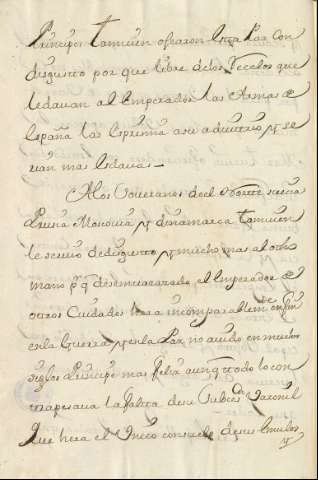 Principes tambien ofrecen esta Paz con
disgusto por que libre delos Recelos que
ledavan al Emperador las Armas de
españa las esprimia asu advitrio y se
van mas
Alos Soveranos del Norte suecia
Prusia Moscovia y dinamarca tambien
le sevio dedisgusto y mucho mas al oto
mano p q desembarazado el Emperador de
otros Cuidados hera incomparablemte
enla Guerra y enla Paz, no avido en muchos
siglos Principe mas feliz aunq todo lo con
trapesava la falta desu Subcesn Varonil
que hera el Unico consuelo desus emulos